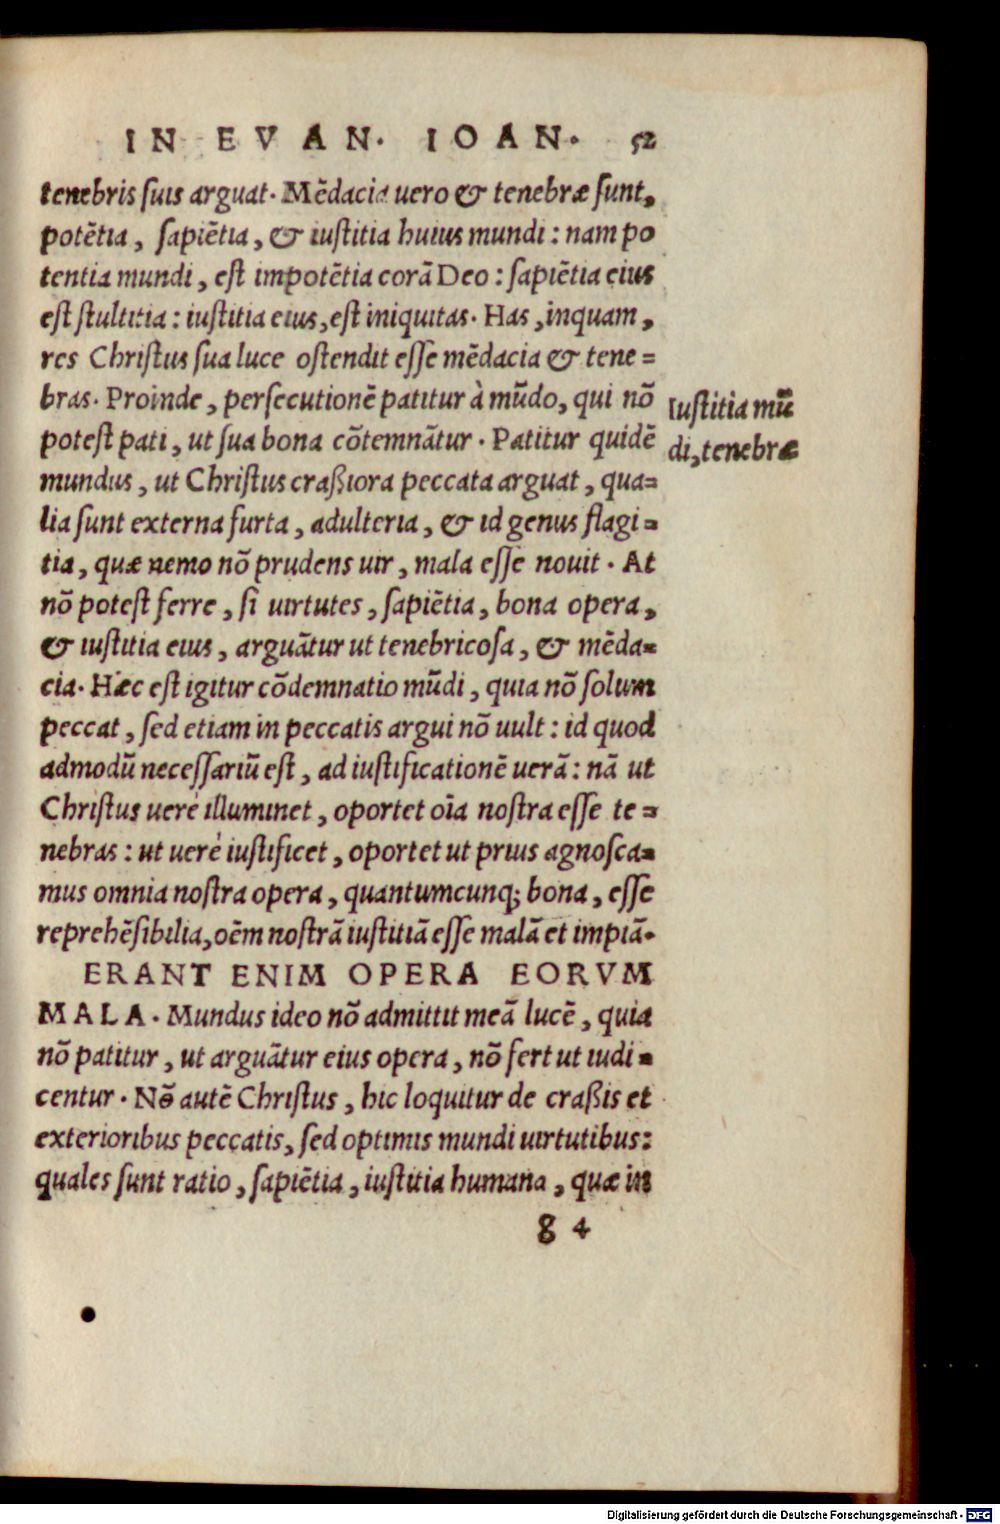 IN EVAN. IOAN. 52
tenebris suis arguat. Mēdacia uero & tenebræ sunt,
potētia, sapiētia, & iustitia huius mundi: nam po
tentia mundi, est impotētia corā Deo: sapiētia eius
est stultitia: iustitia eius, est iniquitas. Has, inquam,
res Christus sua luce ostendit esse mēdacia & tene=
bras. Proinde, persecutionē patitur à mūdo, qui nō
potest pati, ut sua bona cōtemnātur. Patitur quidē
mundus, ut Christus craßiora peccata arguat, qua=
lia sunt externa furta, adulteria, & id genus flagi=
tia, quæ nemo nō prudens uir, mala esse nouit. At
nō potest ferre, si uirtutes, sapiētia, bona opera,
& iustitia eius, arguātur ut tenebricosa, & mēda=
cia. Hæc est igitur cōdemnatio mūdi, quia nō solum
peccat, sed etiam in peccatis argui nō uult: id quod
admodū necessariū est, ad iustificationē uerā: nā ut
Christus uerè illuminet, oportet oīa nostra esse te=
nebras: ut uerè iustificet, oportet ut prius agnosca=
mus omnia nostra opera, quantumcunq; bona, esse
reprehēsibilia, oēm nostrā iustitiā esse malā et impiā.
ERANT ENIM OPERA EORVM
MALA. Mundus ideo nō admittit meā lucē, quia
nō patitur, ut arguātur eius opera, nō fert ut iudi=
centur. Nō autē Christus, hic loquitur de craßis et
exterioribus peccatis, sed optimis mundi uirtutibus:
quales sunt ratio, sapiētia, iustitia humana, quæ in
g 4
Iustitia mū
di, tenebræ
Digitalisierung gefördert durch die Deutsche Forschungsgemeinschaft - DFG